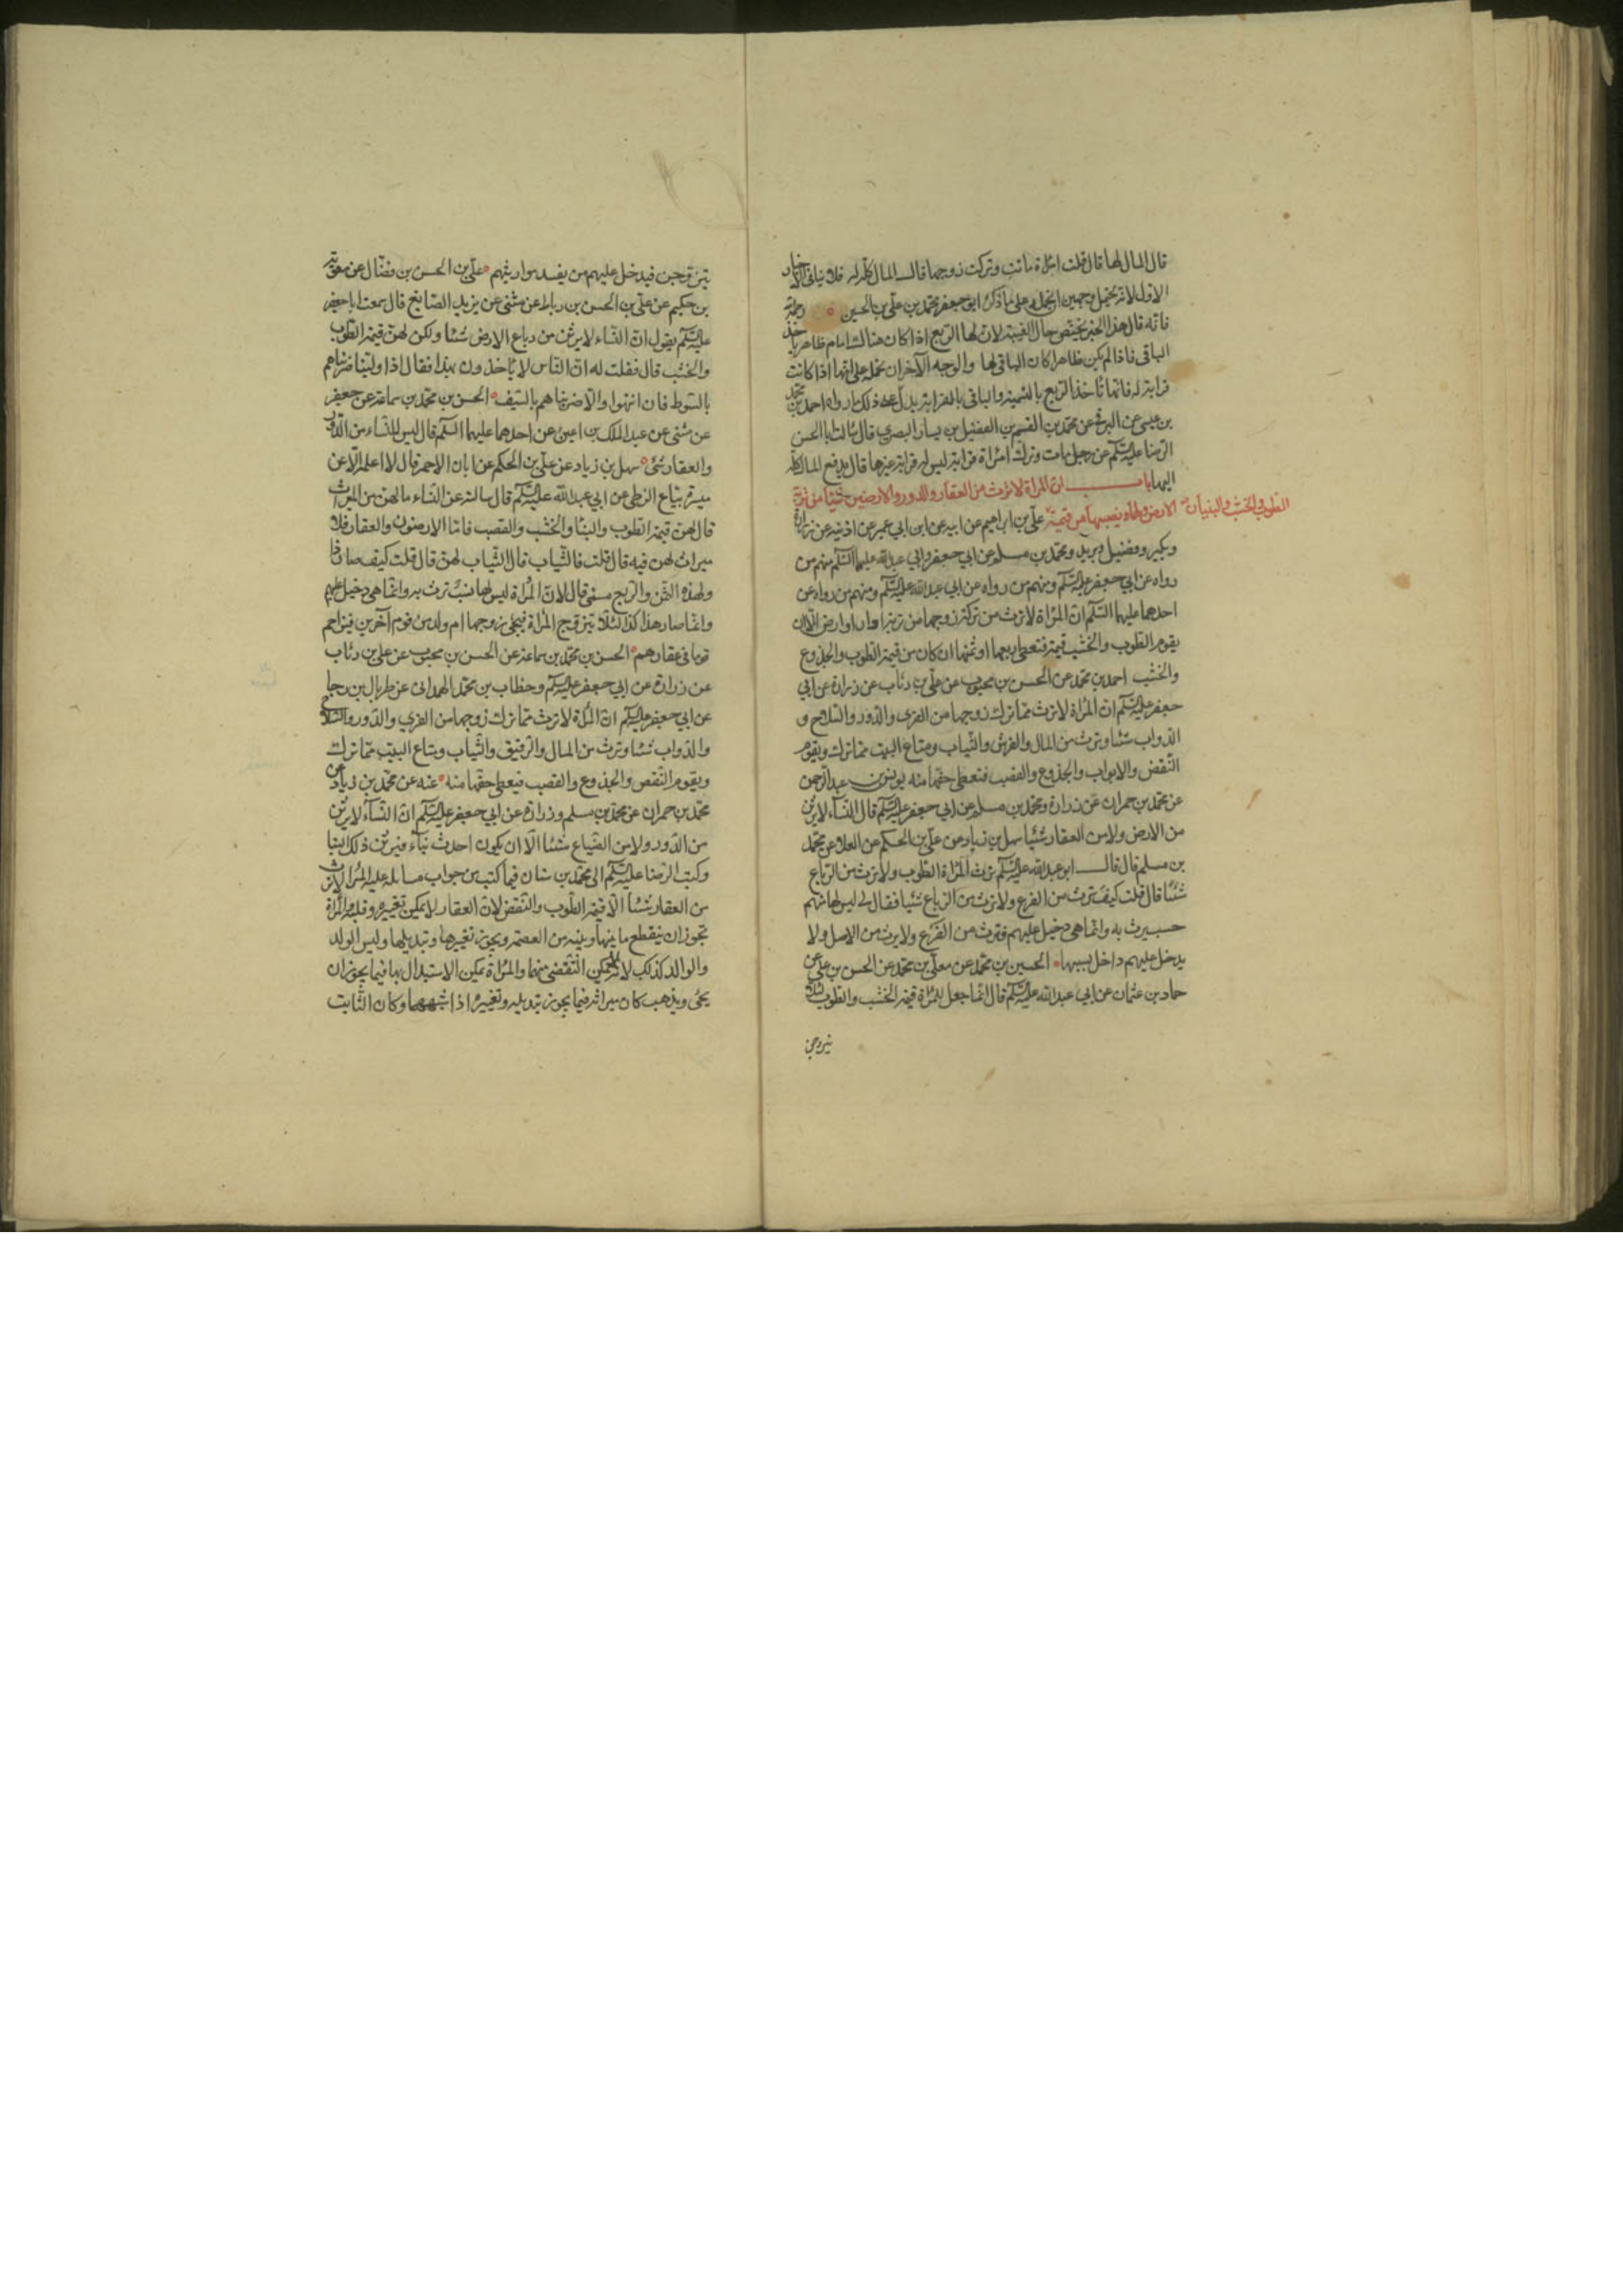 قال المال لها قال قلت امرأة ماتت وتركت زوجها قال المال كله له فلا ينافي الاخبار
الاول لانه يحتمل وجهين احدهما على ما ذكره ابو جعفر محمد بن علي بن الحسين رحمه الله
فانه قال هذا الخبر يختص حال الغيبة لان لها الربع اذا كان هناك امام ظاهر ياخذ
الباقي فاذا لم يكن ظاهرا كان الباقي لها والوجه الآخر ان نحمله على انها اذا كانت
قرابة له فانها تاخذ الربع بالتسمية والباقي بالقرابة يدل على ذلك ما رواه احمد بن محمد
بن عيسى عن البرقي عن محمد بن القسم بن الفضيل بن يسار البصري قال سالت ابا الحسن
الرضا عليه السلم عن رجل مات وترك امرأة قرابة ليس له قرابة غيرها قال يدفع المال كله
اليها باب ان المرأة لا ترث من العقار والدور والارضين شيئا من تربة
الارض ولها نصيبها من قيمة الطوب والخشب والبنيان علي بن ابراهيم عن ابيه عن ابن ابي عمير عن اذينة عن زرارة
وبكير وفضيل وبريد ومحمد بن مسلم عن ابي جعفر وابي عبد الله عليهما السلم منهم من
رواه عن ابي جعفر عليه السلم ومنهم من رواه عن ابي عبد الله عليه السلم ومنهم من رواه عن
احدهما عليهما السلم ان المرأة لا ترث من تركة زوجها من تربة دار او ارض الا ان
يقوم الطوب والخشب قيمة فتعطى ربعها او ثمنها ان كان من قيمة الطوب والجذوع
والخشب احمد بن محمد عن الحسن بن محبوب عن علي بن رئاب عن زرارة عن ابي
جعفر عليه السلم ان المرأة لا ترث مما ترك زوجها من القرى والدور والسلاح و
الدواب شيئا وترث من المال والفرش والثياب ومتاع البيت مما ترك ويقوم
النقض والابواب والجذوع والقصب فتعطى حقها منه يونس بن عبد الرحمن
عن محمد بن حمران عن زرارة ومحمد بن مسلم عن ابي جعفر عليه السلم قال النساء لا يرثن
من الارض ولا من العقار شيئا سهل بن زياد عن علي بن الحكم عن العلا عن محمد
بن مسلم قال قال ابو عبد الله عليه السلم ترث المرأة الطوب ولا ترث من الرباع
شيئا قال قلت كيف ترث من الفرع ولا ترث من الرباع شيئا فقال لي ليس لها منهم
حسب يرث به وانما هي دخيل عليهم فترث من الفرع ولا يرث من الاصل ولا
يدخل عليهم داخل بسببها الحسين بن محمد عن معلى بن محمد عن الحسن بن علي عن
حماد بن عثمان عن ابي عبد الله عليه السلم قال انما جعل للمرأة قيمة الخشب والطوب لئلا
يتزوجن
يتزوجن فيدخل عليهم من يفسد مواريثهم علي بن الحسن بن فضال عن معوية
بن حكيم عن علي بن الحسن بن رباط عن مثنى عن يزيد الصايغ قال سمعت ابا جعفر
عليه السلم يقول ان النساء لا يرثن من رباع الارض شيئا ولكن لهن قيمة الطوب
والخشب قال فقلت له ان الناس لا ياخذون بهذا فقال اذا ولينا ضربناهم
بالسوط فان انتهوا والا ضربناهم بالسيف الحسن بن محمد بن سماعة عن جعفر
عن مثنى عن عبد الملك بن اعين عن احدهما عليهما السلم قال ليس للنساء من الدور
والعقار شئ سهل بن زياد عن علي بن الحكم عن ابان الاحمر قال لا اعلمه الا عن
ميسر بياع الزطي عن ابي عبد الله عليه السلم قال سالته عن النساء ما لهن من الميراث
قال لهن قيمة الطوب والبنا والخشب والقصب فاما الارضون والعقار فلا
ميراث لهن فيه قال قلت فالثياب قال الثياب لهن قال قلت كيف صار ذا
ولهذه الثمن والربع مسمى قال لان المرأة ليس لها نسب ترث به وانما هي دخيل عليهم
وانما صار هذا كذا لئلا تتزوج المرأة فيجئ زوجها ام ولد من قوم آخرين فيزاحم
قوما في عقارهم الحسن بن محمد بن سماعة عن الحسن بن محبوب عن علي بن رئاب
عن زرارة عن ابي جعفر عليه السلم وخطاب بن محمد الهمداني عن طربال بن رجا
عن ابي جعفر عليه السلم ان المرأة لا ترث مما ترك زوجها من القرى والدور والسلاح
والدواب شيئا وترث من المال والرقيق والثياب ومتاع البيت مما ترك
ويقوم النقض والجذوع والقصب فيعطى حقها منه عنه عن محمد بن زياد عن
محمد بن حمران عن محمد بن مسلم وزرارة عن ابي جعفر عليه السلم ان النساء لا يرثن
من الدور ولا من الضياع شيئا الا ان يكون احدث بناء فيرثن ذلك البنا
وكتب الرضا عليه السلم الى محمد بن سنان فيما كتب من جواب مسائله علة المرأة لا ترث
من العقار شيئا الا قيمة الطوب والنقض لان العقار لا يمكن تغييره وقلبه والمرأة
يجوز ان ينقطع ما بينها وبينه من العصمة ويجوز تغييرها وتبديلها وليس الولد
والوالد كذلك لانه لا يمكن التفصي منهما والمرأة يمكن الاستبدال بها فيما يجوز ان
يجئ ويذهب كان ميراثه فيما يجوز تبديله وتغييره اذا اشبهها وكان الثابت